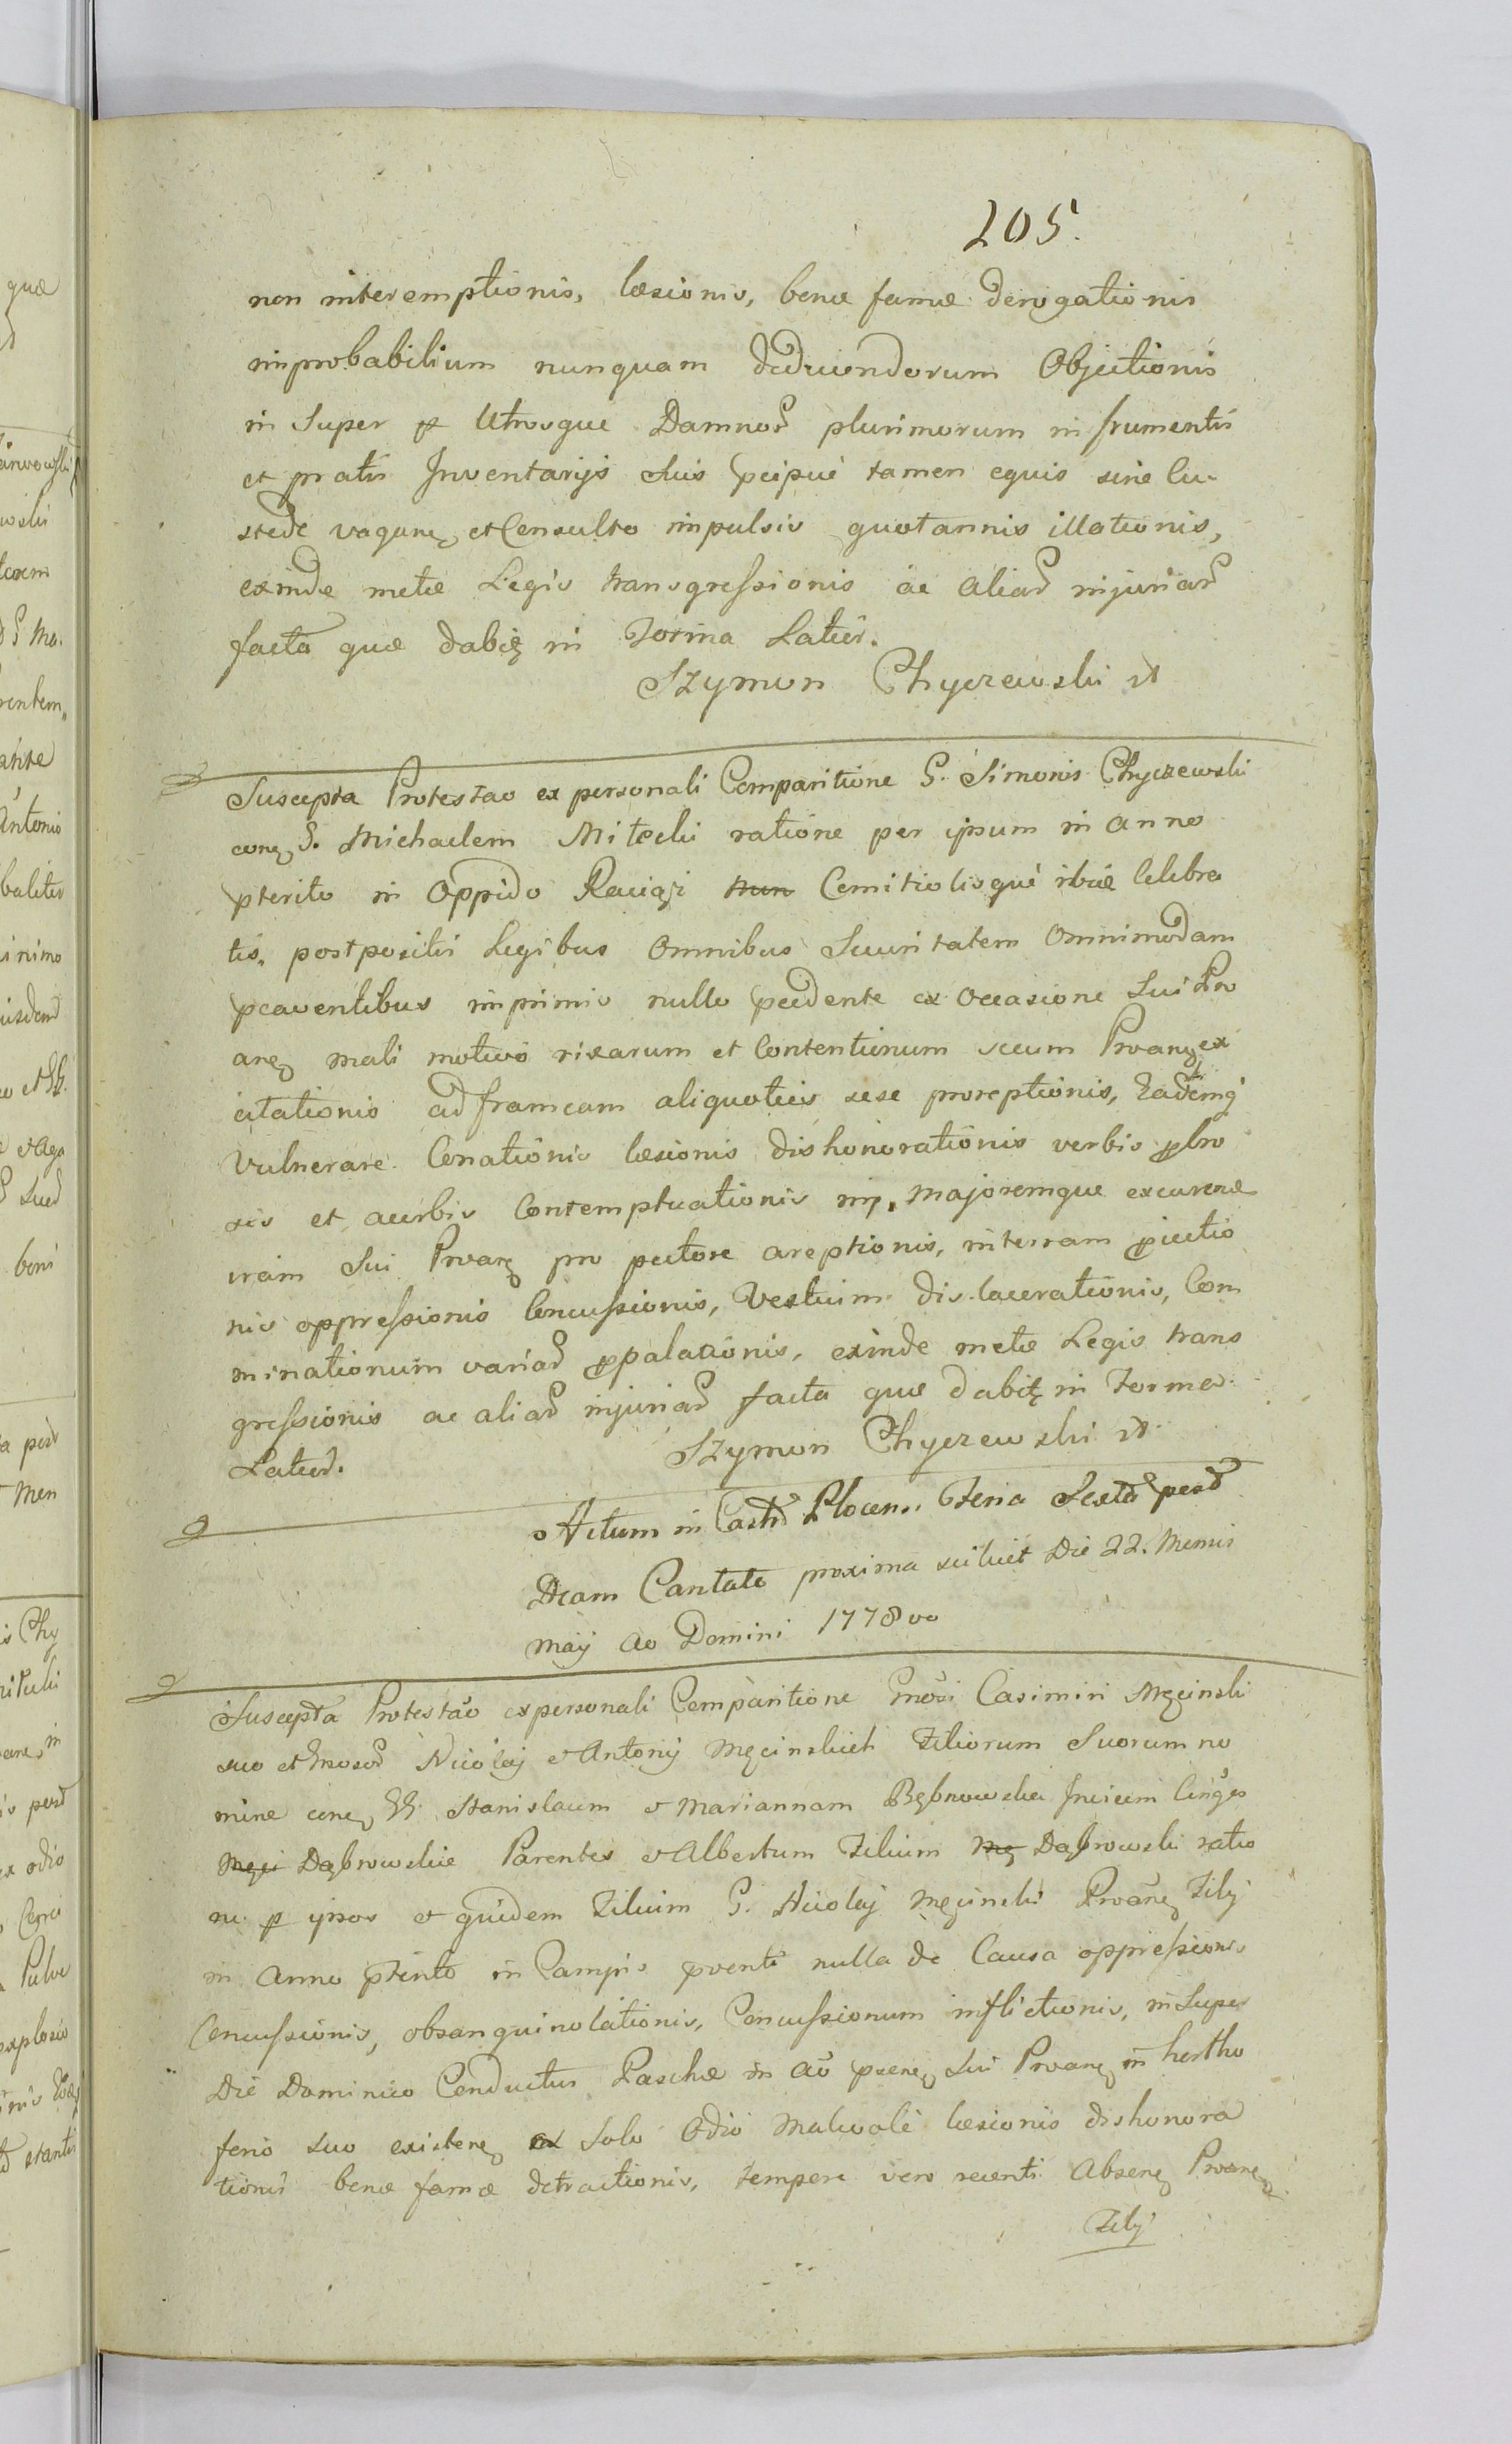 205.
non interemptionis, læsionis, benæ famæ derogationis
improbabilium nunquam deducendorum Objectionis
in Super p Utrosque Damnor plurimorum in frumentis
et pratis Inventarijs Suis pcipuè tamen equis sine cu-
stede vagan et Consulto impulsis quotannis illationis,
exinde metæ Legis transgressionis ac aliar injuriar
facta quæ dabit in Forma Latior.
Szymon Chyczewski
Suscepta Protestao ex personali Comparitione G. Simonis Chyczewski
con G. Michaelem Mitecki ratione per ipsum in anno
pterito in Oppido Raciąż Comitiolisquè ibid Celebra
tis, postpositis Legibus Omnibus Securitatem Omnimodam
pcaventibus imprimis nullo pcedente ex Occasione Sui Pro
an mali motivo rixarum et Contentionum secum Proan ex
citationis ad frameam aliquoties sese proreptionis, Eademq
Vulnerare Conationis læsionis dishonorationis verbis pbro
sis et acerbis Contemptuationis in majoremque excurrere
iram Sui Proan pro pectore areptionis, in terram pjectio
nis oppressionis Concussionis, Vestium dis lacerationis, Com
minationum variar ppalationis, exinde metæ Legis trans
gressionis ac aliar injuriar facta quæ dabit in Forma
Latiori.
Szymon Chyczewski
Actum in Castr Plocen. Feria Sexta post
Dcam Cantate proxima scilicet Die 22. Mensis
Maij Ao Domini 1778vo
Suscepta Protestao ex personali Comparitione Gnosi Casimiri Męcinski
suo et Gnosor Nicolaj et Antonij Męcinskich Filiorum Suorum no
mine con GG. Stanislaum et Mariannam Bębnowska Invicem Conges
Męci Dąbrowskie Parentes et Albertum Filium Mę Dąbrowski ratio
ne p ipsos et quidem Filium G. Nicolaj Męcinski Proan Filij
in Anno pterito in Campis pventi nulla de Causa oppressionis
Concussionis, obsanguinolationis, Concussionum inflictionis, in Super
Die Dominico Conductus Paschæ in Ao psen Sui Proan in hortho
feno suo existen ex Solo Odio Malevole læsionis dishonora
tionis benæ famæ detractionis, tempore vero recenti Absen Proan
Filij